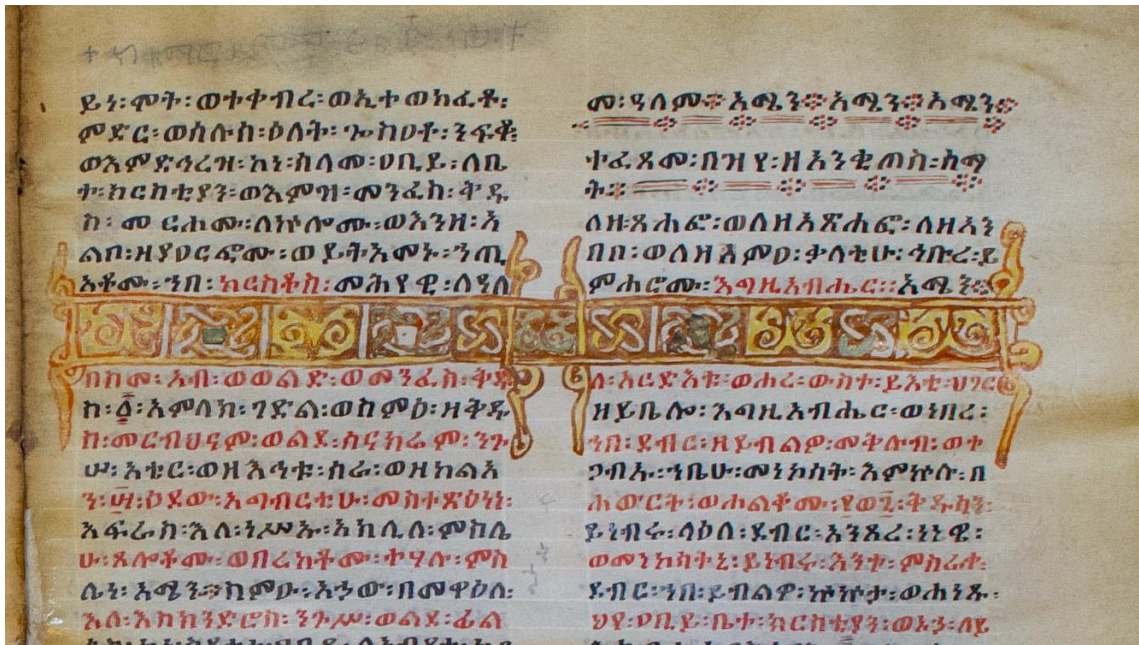 ይነ፡ሞት፡ወተቀብረ፡ወኢተወክፈቶ፡
ምድር፡ወሰሉስ፡ዕለት፡
ወእምድኅረዝ፡ከነ፡ሰላመ፡ዐቢይ፡ለቤ
ተ፡ክርስቲያን፡ወእምዝ፡መንፈስ፡ቅዱ
ስ፡ መ ርሐሙ፡ለኵሎሙ፡ወእንዘ፡አ
ልቦ፡ዘያዐርፎሙ፡ወይትአመኑ፡
ኀበ፡ ክርስቶስ፡መሕየዊ፡ለዓለ
በስመ፡አብ፡ወወልድ፡ወመንፈስ፡ቅዱ
ስ፡፩፡አምላክ፡ገድል፡ወስምዕ፡ዘቅዱ
ስ፡መርብህናም፡ወልደ፡ስናክሬም፡ንጉ
ሠ፡አቴር፡ወዘእኅቱ፡ሳራ፡ወዘካልአ
ን፡ዕደው፡አግብርቲሁ፡መስተጽዕነነ፡
አፍራስ፡እለ፡ነሥኡ፡አክሊለ፡ምስሌ
ሁ፡ጸሎቶሙ፡ወበረከቶሙ፡ተሃሉ፡ምስ
ሌነ፡አሜን፡ስምዑ፡አኃው፡በመዋዕለ፡
እለ፡እስክንድሮስ፡ንጉሥ፡ወልደ፡ፊል
መ፡ዓለም፡አሜን፡አሜን፡አሜን፡
ተፈጸመ፡በዝየ፡ዘእንቂጦስ፡ሰማ
ት፡
ለዘ፡ጸሐፎ፡ወለዘአጽሐፎ፡ለዘአን
በቦ፡ወለዘሰምዐ፡ቃላቲሁ፡ኅቡረ፡ይ
ምሐሮሙ፡እግዚአብሔር፡፡አሜን፡
ለ፡አርድእቱ፡ወሐረ፡ውስተ፡ይእቲ፡ሀገር
ዘይቤሎ፡እግዚአብሔር፡ወነበረ፡
ኀበ፡ደብር፡ዘይብልዎ፡መቅሉብ፡ወተ
ጋብኡ፡ኀቤሁ፡መነኮሳት፡እምኵሉ፡በ
ሐውርት፡ወሐልቆሙ፡ ቅዱሳን፡
ይነብሩ፡ላዕለ፡ደብር፡አንጻረ፡ነነዌ፡
ወመንኮሳትኒ፡ይነብሩ፡እንተ፡ምስራቀ፡
ደብር፡ኀበ፡ይብልዎ፡ኵኵታ፡ወሐነጹ፡
ህየ፡ዐቢይ፡ቤተ፡ክርስቲያን፡